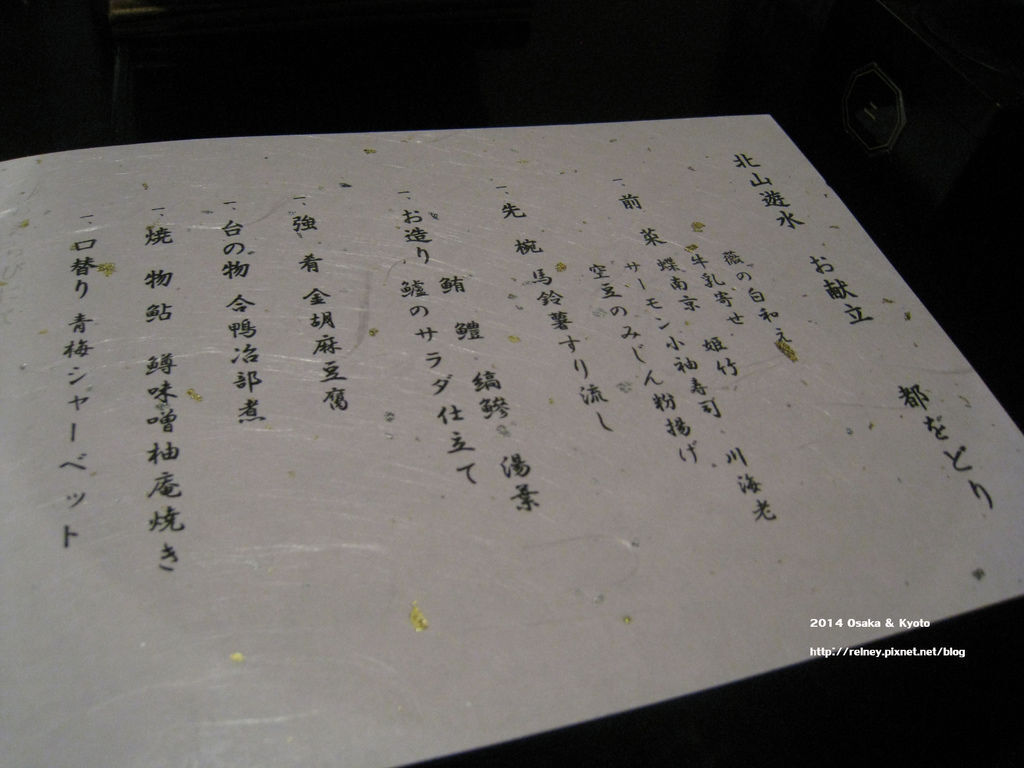 北山遊水　お献立　都をどり
一、前　菜　薇の白和え
牛乳寄せ　姫竹　川海老
蝶南京　小袖寿司
サーモン　粉揚げ
空豆のみじん
一、先　椀　馬鈴薯すり流し
一、お造り　鮪　鱧　縞鯵　湯葉
鱸のサラダ仕立て
一、強　肴　金胡麻豆腐
一、台の物　合鴨冶部煮
一、焼　物　鮎　鱒味噌柚庵焼き
一、口替り　青梅シャーベット
2014 Osaka & Kyoto
http://relney.pixnet.net/blog